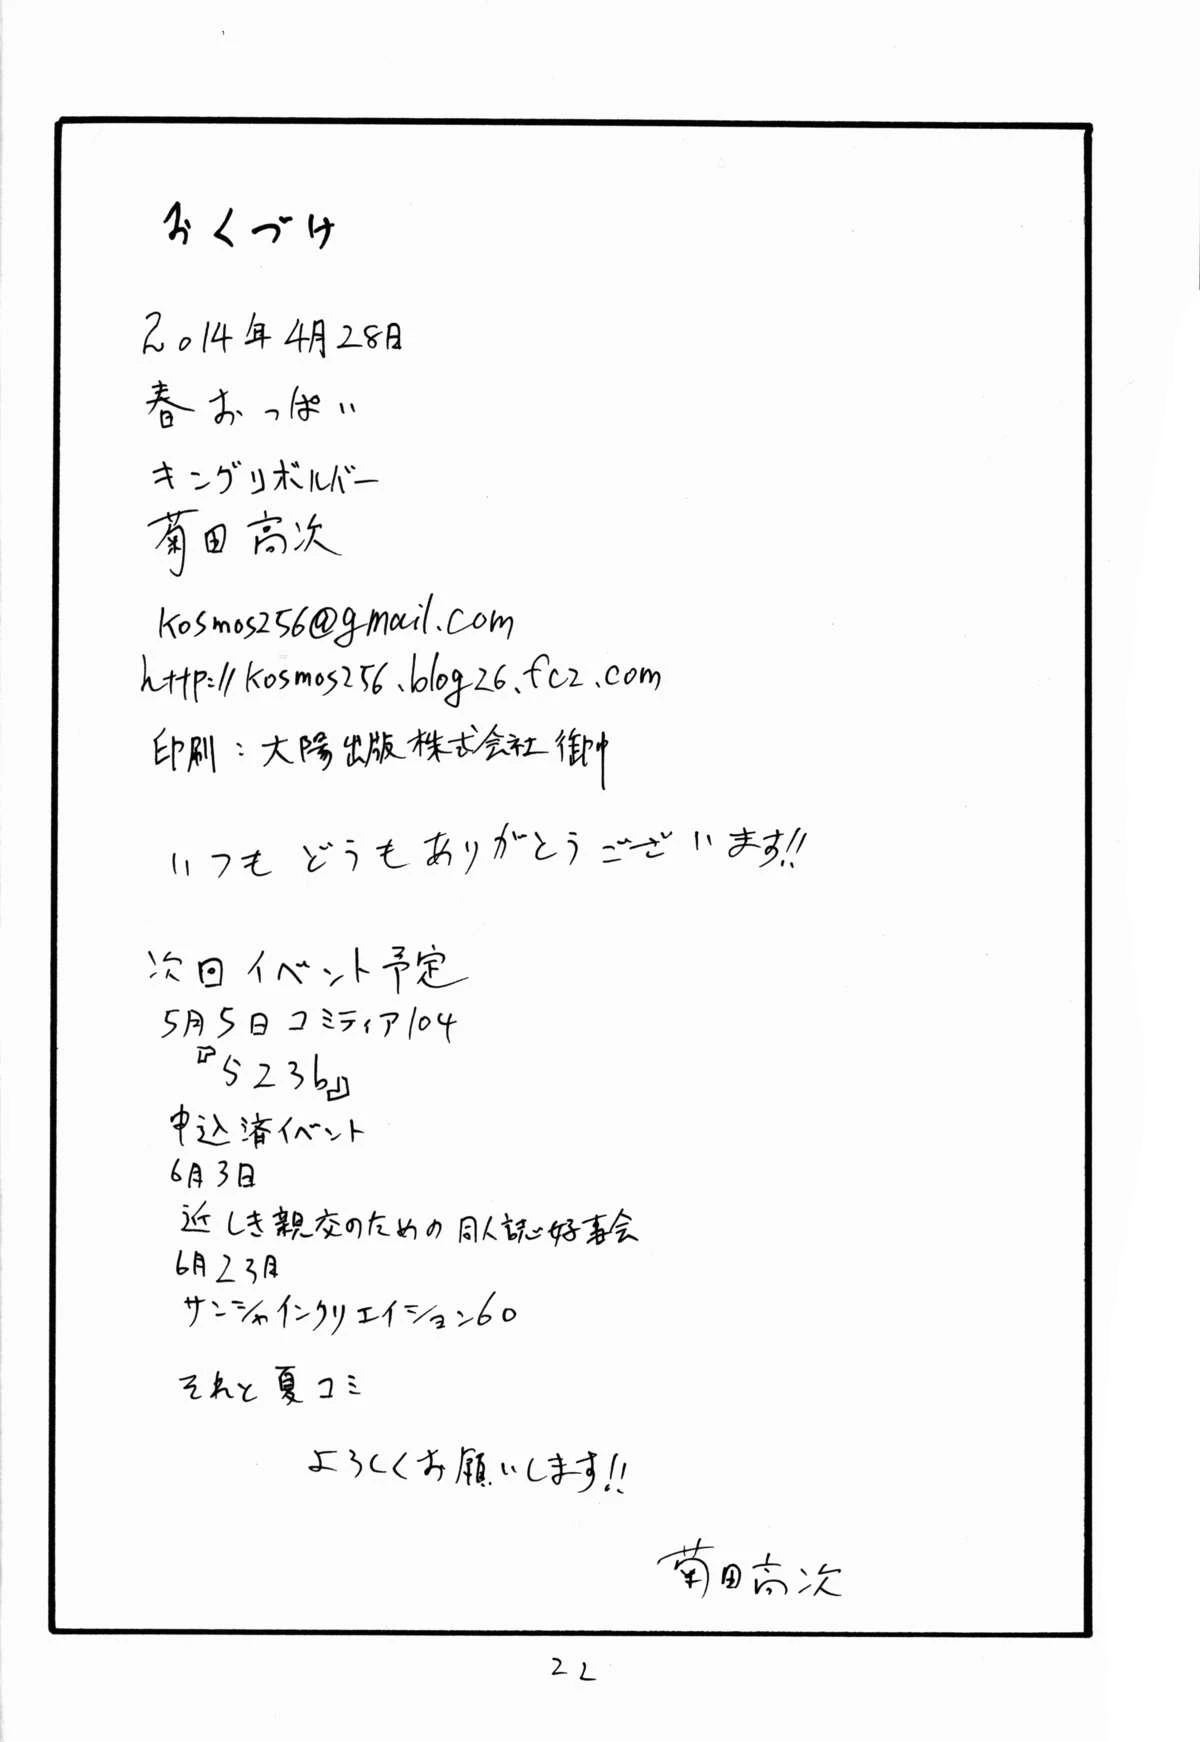 おくづけ
2014年4月28日
春おっぱい
キングリボルバー
菊田高次
kosmos256@gmail.com
http://kosmos256.blog26.fc2.com
印刷:大陽出版株式会社御中
いつもどうもありがとうございます!!
次回イベント予定
5月5日コミティア104
『S23b』
申込済イベント
6月3日
近しき親交のための同人誌好事会
6月23日
サンシャインクリエイション60
それと夏コミ
よろしくお願いします!!
菊田高次
22